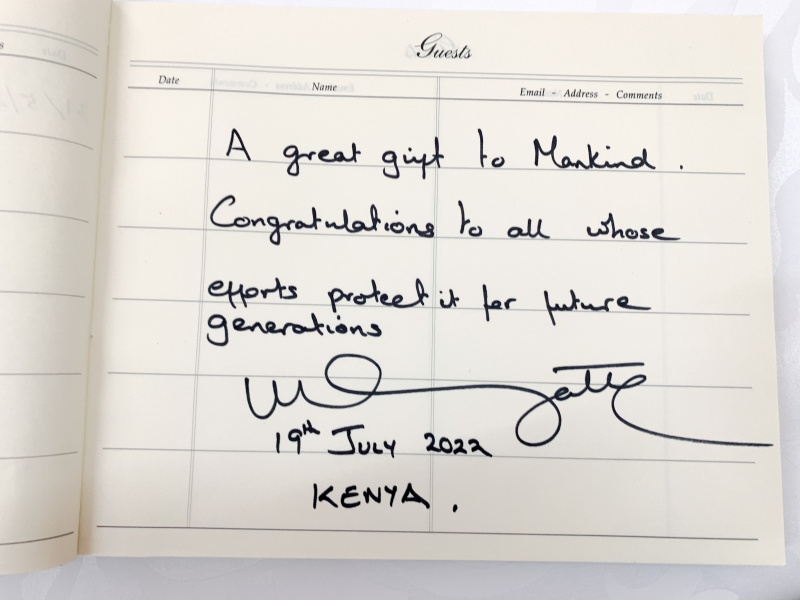 Guests
Date Name Email - Address - Comments
A great gift to Mankind .
Congratulations to all whose
efforts protect it for future
generations
19th JULY 2022
KENYA .